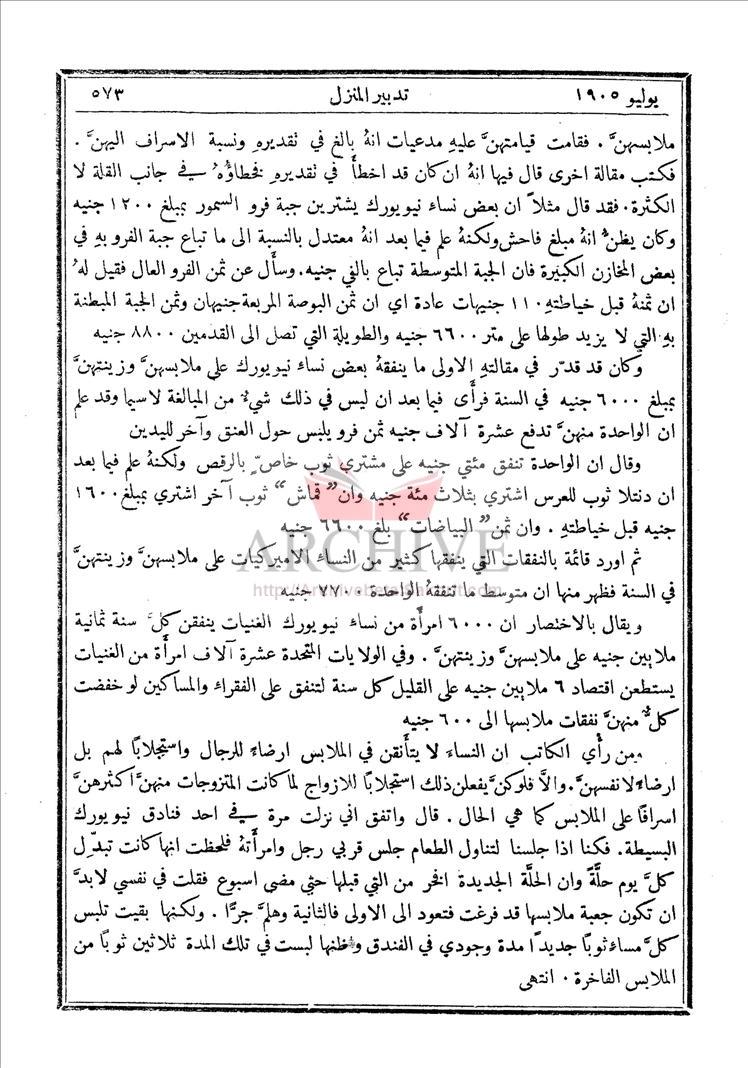 يوليو ١٩٠٥ تدبير المنزل ٥٧٣
ملابسهنَّ . فقامت قيامتهنَّ عليهِ مدعيات انهُ بالغ في تقديرهِ ونسبة الاسراف اليهنَّ .
فكتب مقالة اخرى قال فيها انهُ ان كان قد اخطأَ في تقديرهِ فخطاؤُهُ في جانب القلة لا
الكثرة . فقد قال مثلاً ان بعض نساء نيويورك يشترين جبة فرو السمور بمبلغ ١٢٠٠ جنيه
وكان يظنُّ انهُ مبلغ فاحش ولكنهُ علم فيما بعد انهُ معتدل بالنسبة الى ما تباع جبة الفرو بهِ في
بعض المخازن الكبيرة فان الجبة المتوسطة تباع بالفي جنيه . وسأَل عن ثمن الفرو العال فقيل لهُ
ان ثمنهُ قبل خياطتهِ ١١٠ جنيهات عادة اي ان ثمن البوصة المربعة جنيهان وثمن الجبة المبطنة
بهِ التي لا يزيد طولها على متر ٦٦٠٠ جنيه والطويلة التي تصل الى القدمين ٨٨٠٠ جنيه
وكان قد قدّر في مقالتهِ الاولى ما ينفقهُ بعض نساء نيويورك على ملابسهنَّ وزينتهنَّ
بمبلغ ٦٠٠٠ جنيه في السنة فرأَى فيما بعد ان ليس في ذلك شيءٌ من المبالغة لاسيما وقد علم
ان الواحدة منهنَّ تدفع عشرة آلاف جنيه ثمن فرو يلبس حول العنق وآخر لليدين
وقال ان الواحدة تنفق مئتي جنيه على مشترى ثوب خاصّ بالرقص ولكنهُ علم فيما بعد
ان دنتلا ثوب للعرس اشتري بثلاث مئة جنيه وان "قماش" ثوب آخر اشتري بمبلغ ١٦٠٠
جنيه قبل خياطتهِ . وان ثمن "البياضات" بلغ ٦٦٠٠ جنيه
ARCHIVE
ثم اورد قائمة بالنفقات التي ينفقها كثير من النساء الاميركيات على ملابسهنَّ وزينتهنَّ
http://Archivebeta.Sakhrit.com
في السنة فظهر منها ان متوسط ما تنفقهُ الواحدة ٧٧٠٠ جنيه
ويقال بالاختصار ان ٦٠٠٠ امرأَة من نساء نيويورك الغنيات ينفقن كلَّ سنة ثمانية
ملايين جنيه على ملابسهنَّ وزينتهنَّ . وفي الولايات المتحدة عشرة آلاف امرأَة من الغنيات
يستطعن اقتصاد ٦ ملايين جنيه على القليل كل سنة لتنفق على الفقراء والمساكين لو خفضت
كلٌّ منهنَّ نفقات ملابسها الى ٦٠٠ جنيه
ومن رأْي الكاتب ان النساء لا يتأَنقن في الملابس ارضاءً للرجال واستجلابًا لهم بل
ارضاءً لانفسهنَّ . والاَّ فلو كنَّ يفعلن ذلك استجلابًا للازواج لما كانت المتزوجات منهنَّ اكثرهنَّ
اسرافًا على الملابس كما هي الحال . قال واتفق اني نزلت مرة في احد فنادق نيويورك
البسيطة . فكنا اذا جلسنا لتناول الطعام جلس قربي رجل وامرأَتهُ فلحظت انها كانت تبدّل
كلَّ يوم حلَّةً وان الحلَّة الجديدة افخر من التي قبلها حتى مضى اسبوع فقلت في نفسي لابدَّ
ان تكون جعبة ملابسها قد فرغت فتعود الى الاولى فالثانية وهلمَّ جرًّا . ولكنها بقيت تلبس
كلَّ مساءٍ ثوبًا جديدًا مدة وجودي في الفندق وظنها لبست في تلك المدة ثلاثين ثوبًا من
الملابس الفاخرة . انتهى